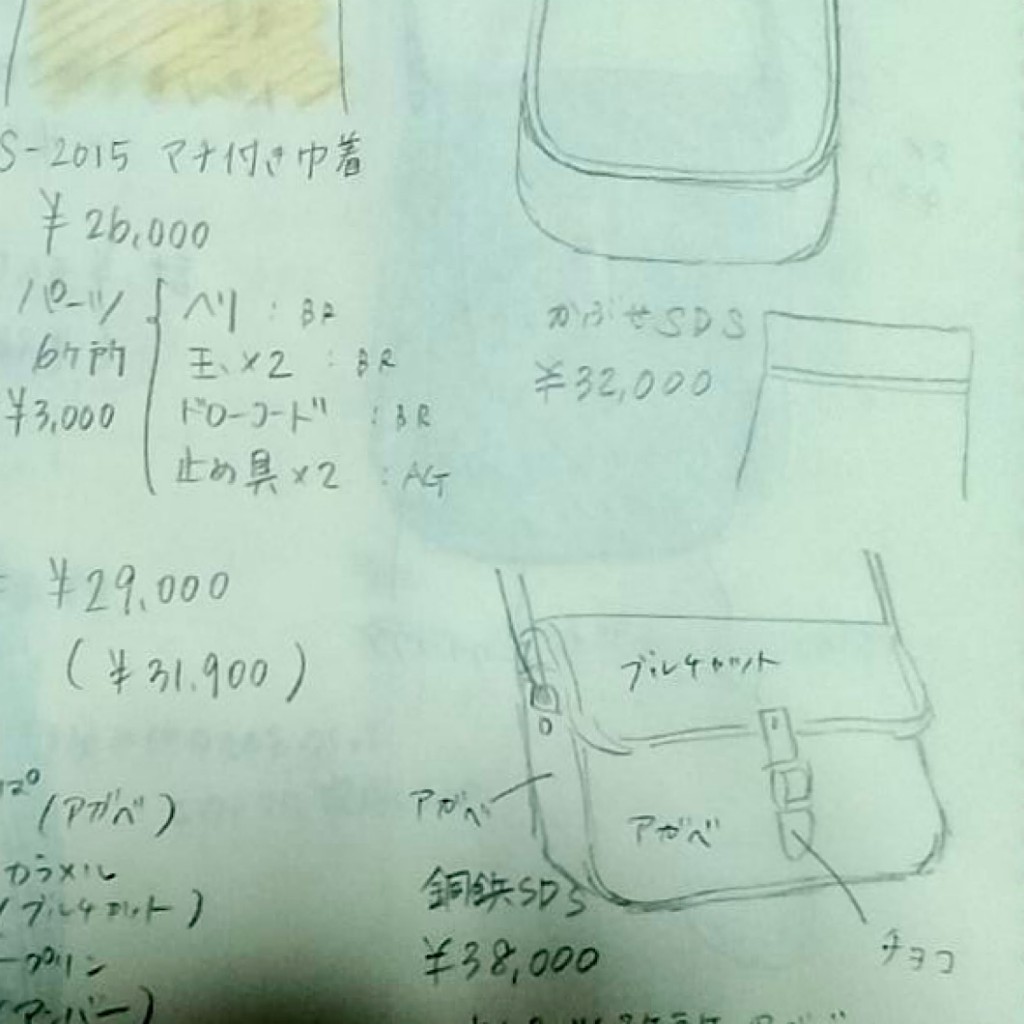 S-2015 マチ付き巾着
¥26,000
パーツ
6ケ所
¥3,000
ヘリ : BR
玉×2 : BR
ドローコード : BR
止め具×2 : AG
¥29,000
(¥31,900)
(アガベ)
カラメル
(ブルチャット)
プリン
(アンバー)
かぶせSDS
¥32,000
ブルチャット
アガベ
アガベ
チョコ
銅鉄SDS
¥38,000